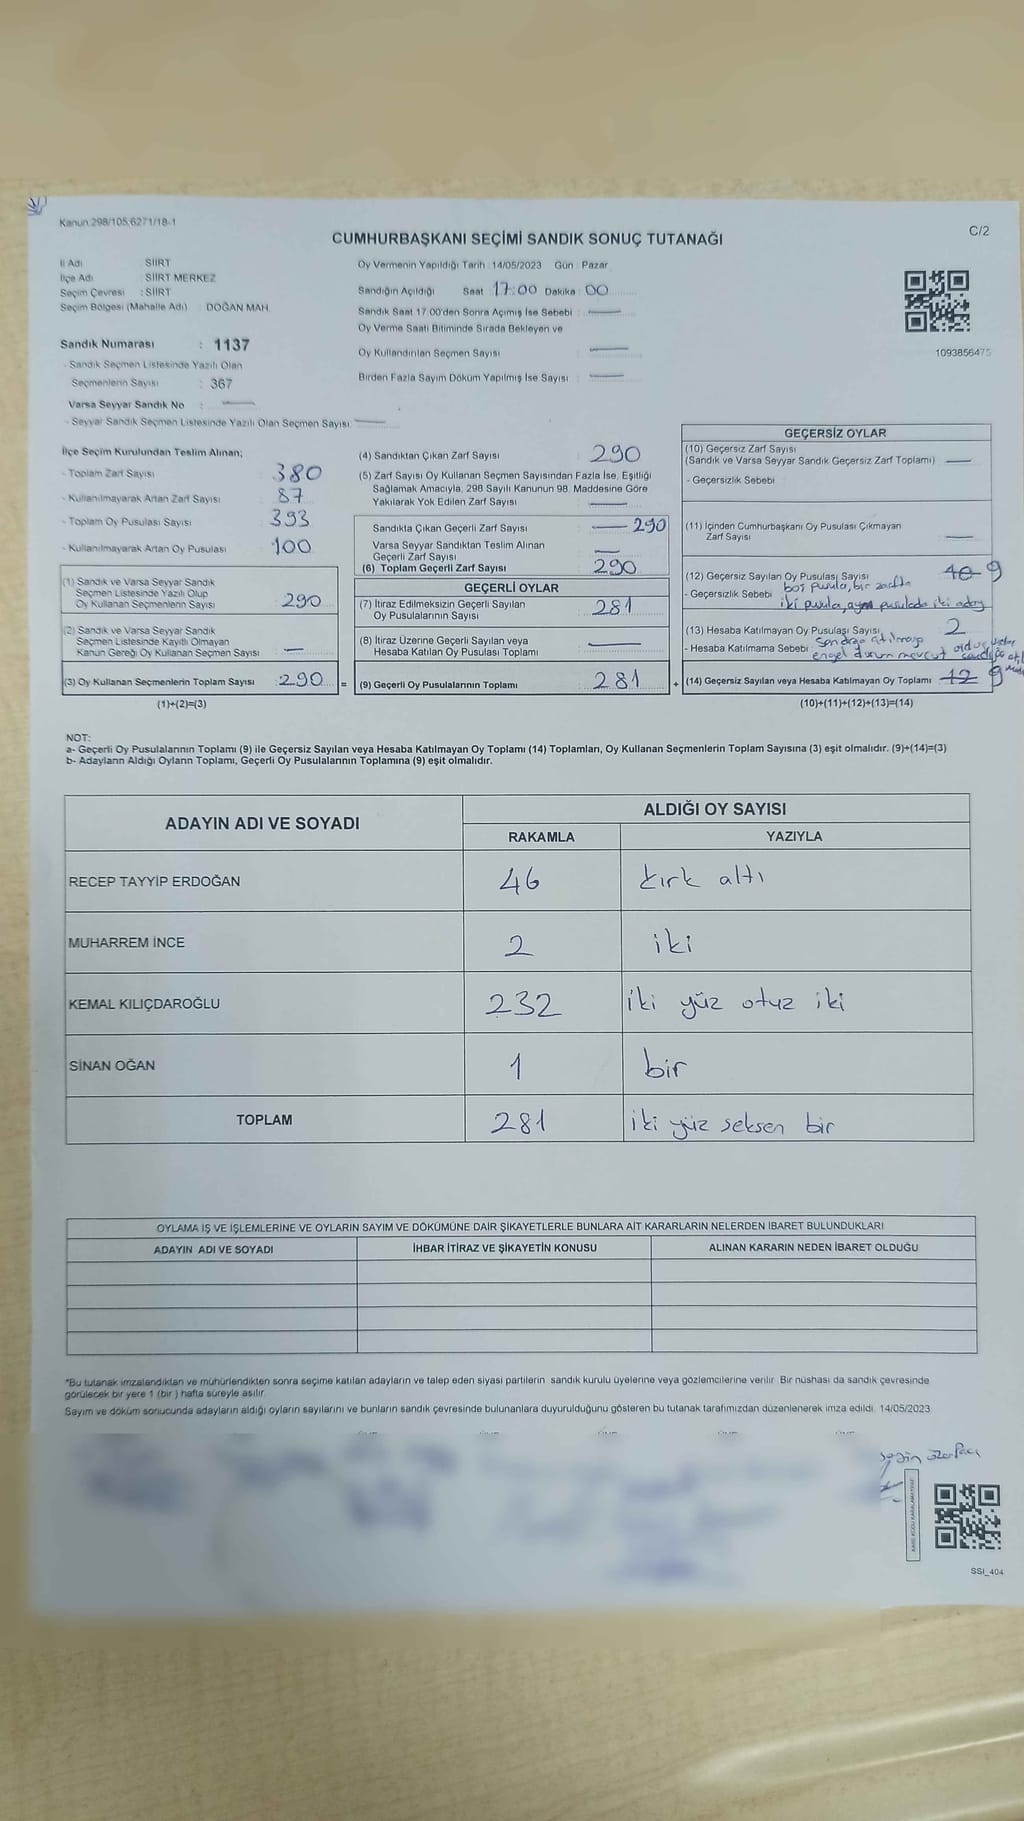 Kanun 298/105,6271/18-1
C/2
CUMHURBAŞKANI SEÇİMİ SANDIK SONUÇ TUTANAĞI
İl Adı SİİRT
İlçe Adı SİİRT MERKEZ
Seçim Çevresi : SİİRT
Seçim Bölgesi (Mahalle Adı) : DOĞAN MAH.
Sandık Numarası : 1137
- Sandık Seçmen Listesinde Yazılı Olan
Seçmenlerin Sayısı : 367
Varsa Seyyar Sandık No :
- Seyyar Sandık Seçmen Listesinde Yazılı Olan Seçmen Sayısı:
Oy Vermenin Yapıldığı Tarih : 14/05/2023 Gün : Pazar
Sandığın Açıldığı Saat 17:00 Dakika : 00
Sandık Saat 17.00'den Sonra Açılmış İse Sebebi :
Oy Verme Saati Bitiminde Sırada Bekleyen ve
Oy Kullandırılan Seçmen Sayısı :
Birden Fazla Sayım Döküm Yapılmış İse Sayısı :
1093856475
İlçe Seçim Kurulundan Teslim Alınan;
- Toplam Zarf Sayısı : 380
- Kullanılmayarak Artan Zarf Sayısı : 87
- Toplam Oy Pusulası Sayısı : 393
- Kullanılmayarak Artan Oy Pusulası : 100
(1) Sandık ve Varsa Seyyar Sandık
Seçmen Listesinde Yazılı Olup
Oy Kullanan Seçmenlerin Sayısı : 290
(2) Sandık ve Varsa Seyyar Sandık
Seçmen Listesinde Kayıtlı Olmayan
Kanun Gereği Oy Kullanan Seçmen Sayısı :
(3) Oy Kullanan Seçmenlerin Toplam Sayısı : 290 =
(1)+(2)=(3)
(4) Sandıktan Çıkan Zarf Sayısı : 290
(5) Zarf Sayısı Oy Kullanan Seçmen Sayısından Fazla İse, Eşitliği
Sağlamak Amacıyla, 298 Sayılı Kanunun 98. Maddesine Göre
Yakılarak Yok Edilen Zarf Sayısı :
Sandıkta Çıkan Geçerli Zarf Sayısı : 290
Varsa Seyyar Sandıktan Teslim Alınan
Geçerli Zarf Sayısı
(6) Toplam Geçerli Zarf Sayısı : 290
GEÇERLİ OYLAR
(7) İtiraz Edilmeksizin Geçerli Sayılan
Oy Pusulalarının Sayısı : 281
(8) İtiraz Üzerine Geçerli Sayılan veya
Hesaba Katılan Oy Pusulası Toplamı :
(9) Geçerli Oy Pusulalarının Toplamı : 281 +
GEÇERSİZ OYLAR
(10) Geçersiz Zarf Sayısı
(Sandık ve Varsa Seyyar Sandık Geçersiz Zarf Toplamı) :
- Geçersizlik Sebebi :
(11) İçinden Cumhurbaşkanı Oy Pusulası Çıkmayan
Zarf Sayısı :
(12) Geçersiz Sayılan Oy Pusulası Sayısı : 10 9
- Geçersizlik Sebebi : boş pusula, bir zarfta
iki pusula, aynı pusulada iki aday
(13) Hesaba Katılmayan Oy Pusulası Sayısı : 2
- Hesaba Katılmama Sebebi : sandığa atılmaya
engel durum mevcut
(14) Geçersiz Sayılan veya Hesaba Katılmayan Oy Toplamı : 12 9
(10)+(11)+(12)+(13)=(14)
NOT:
a- Geçerli Oy Pusulalarının Toplamı (9) ile Geçersiz Sayılan veya Hesaba Katılmayan Oy Toplamı (14) Toplamları, Oy Kullanan Seçmenlerin Toplam Sayısına (3) eşit olmalıdır. (9)+(14)=(3)
b- Adayların Aldığı Oyların Toplamı, Geçerli Oy Pusulalarının Toplamına (9) eşit olmalıdır.
ADAYIN ADI VE SOYADI
ALDIĞI OY SAYISI
RAKAMLA YAZIYLA
RECEP TAYYİP ERDOĞAN 46 kırk altı
MUHARREM İNCE 2 iki
KEMAL KILIÇDAROĞLU 232 iki yüz otuz iki
SİNAN OĞAN 1 bir
TOPLAM 281 iki yüz seksen bir
OYLAMA İŞ VE İŞLEMLERİNE VE OYLARIN SAYIM VE DÖKÜMÜNE DAİR ŞİKAYETLERLE BUNLARA AİT KARARLARIN NELERDEN İBARET BULUNDUKLARI
ADAYIN ADI VE SOYADI İHBAR İTİRAZ VE ŞİKAYETİN KONUSU ALINAN KARARIN NEDEN İBARET OLDUĞU
*Bu tutanak imzalandıktan ve mühürlendikten sonra seçime katılan adayların ve talep eden siyasi partilerin sandık kurulu üyelerine veya gözlemcilerine verilir. Bir nüshası da sandık çevresinde
görülecek bir yere 1 (bir ) hafta süreyle asılır.
Sayım ve döküm sonucunda adayların aldığı oyların sayılarını ve bunların sandık çevresinde bulunanlara duyurulduğunu gösteren bu tutanak tarafımızdan düzenlenerek imza edildi. 14/05/2023
SSI_404